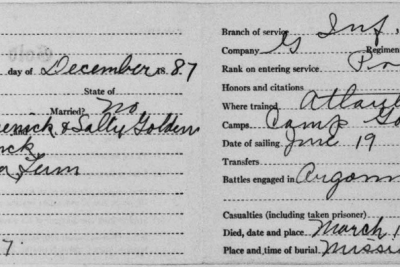 day of December 1887
State of
Married? No
& Sally Golden
Branch of service Inf,
Company G Regimen
Rank on entering service Pr
Honors and citations
Where trained Atlan
Camps Camp Go
Date of sailing June 19
Transfers
Battles engaged in Argonn
Casualties (including taken prisoner)
Died, date and place March 1
Place and time of burial Missi
7.